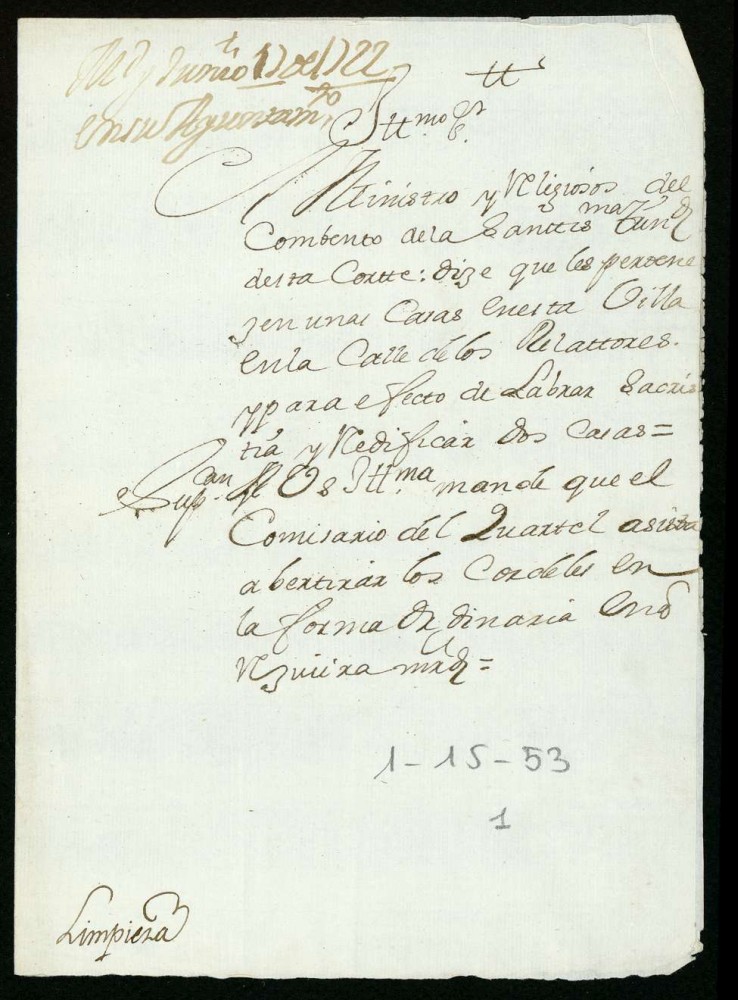 Md y Junio 17 de 1722
en su Ayuntam.to
Ill.mo S.r
Ministro y Religiosos del
Combento de la Santtis.ma Trin.d
desta Cortte: dize que les pertene
zen unas Casas en esta Villa
en la Calle de los Relattores.
y para efecto de Labrar Sacris
tia y Redificar dos casas=
Sup.can A VS Ill.ma mande que el
Comisario del Quartel asista
a bertirar los Cordeles en
la forma Ordinaria en q
Rezivira mrd=
1-15-53
1
Limpieza